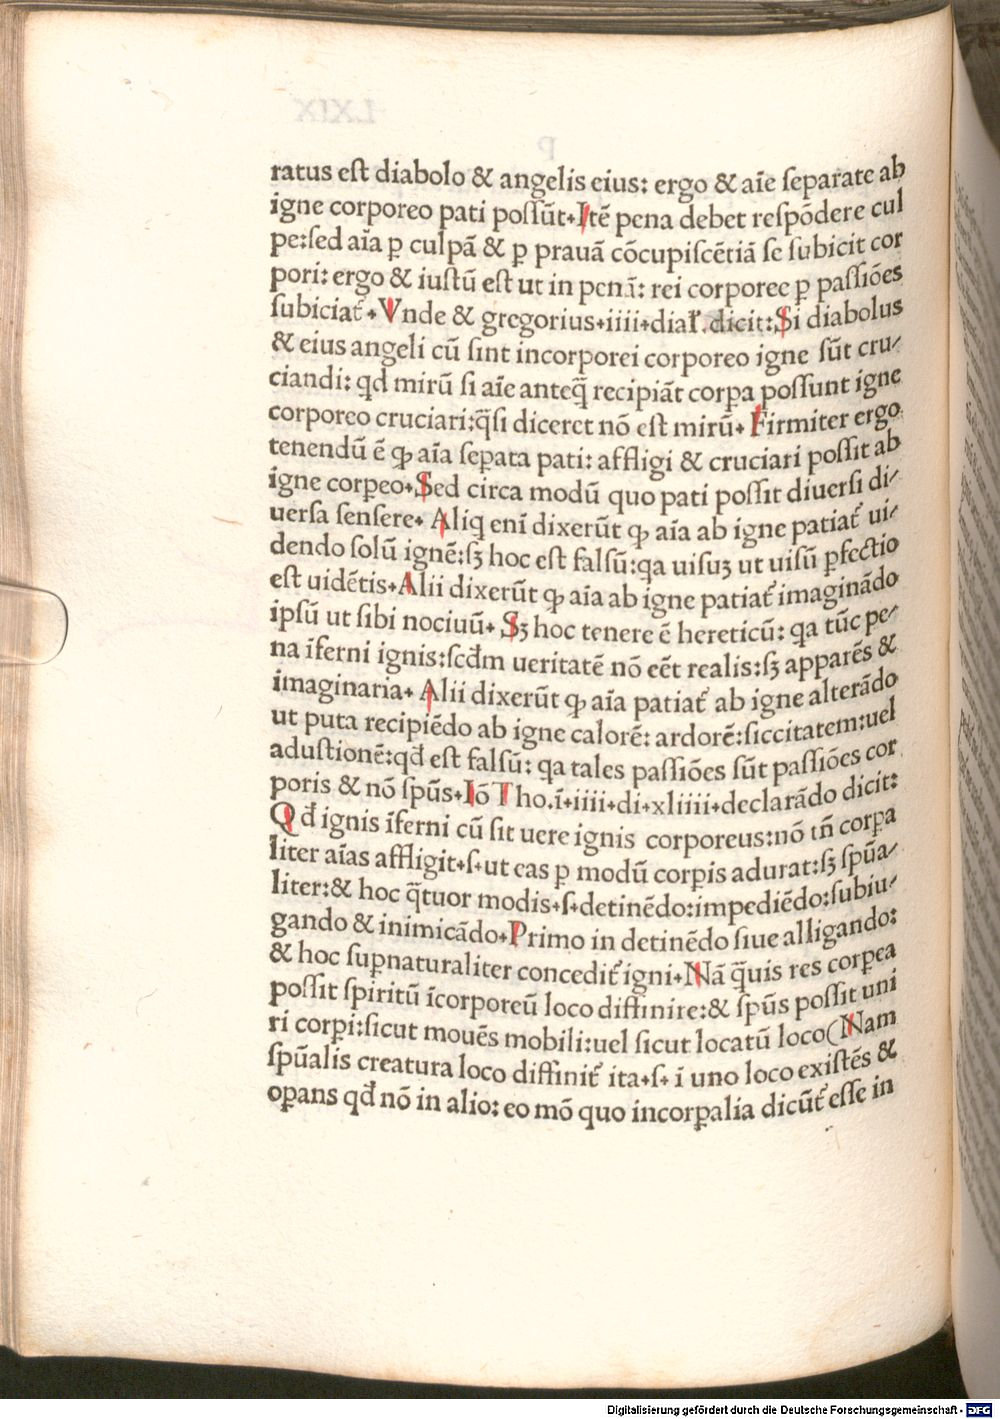 ratus est diabolo & angelis eius: ergo & aīe separate ab
igne corporeo pati possūt. Itē pena debet respōdere cul
pe: sed aīa ꝑ culpā & ꝑ prauā cōcupiscētiā se subicit cor
pori: ergo & iustū est ut in penā: rei corporee ꝑ passiōes
subiciat᷑. Vnde & gregorius .iiii. dial̵. dicit: Si diabolus
& eius angeli cū sint incorporei corporeo igne sūt cru⸗
ciandi: qd mirū si aīe anteq̄ recipiāt corꝑa possunt igne
corporeo cruciari: q̄si diceret nō est mirū. Firmiter ergo
tenendū ē ꝙ aīa seꝑata pati: affligi & cruciari possit ab
igne corꝑeo. Sed circa modū quo pati possit diuersi di⸗
uersa sensere. Aliq enī dixerūt ꝙ aīa ab igne patiat᷑ ui⸗
dendo solū ignē: sꝫ hoc est falsū: qa uisuꝫ ut uisū ꝑfectio
est uidētis. Alii dixerūt ꝙ aīa ab igne patiat᷑ imaginādo
ipsū ut sibi nociuū. Sꝫ hoc tenere ē hereticū: qa tūc pe⸗
na īferni ignis: scd̄m ueritatē nō eēt realis: sꝫ apparēs &
imaginaria. Alii dixerūt ꝙ aīa patiat᷑ ab igne alterādo
ut puta recipiēdo ab igne calorē: ardorē: siccitatem: uel
adustionē: qd̄ est falsū: qa tales passiōes sūt passiōes cor
poris & nō spūs. Iō Tho. ī .iiii. di. xliiii. declarādo dicit:
Qd̄ ignis īferni cū sit uere ignis corporeus: nō tn̄ corꝑa
liter aīas affligit .s. ut eas ꝑ modū corꝑis adurat: sꝫ spūa⸗
liter: & hoc q̄tuor modis .s. detinēdo: impediēdo: subiu⸗
gando & inimicādo. Primo in detinēdo siue alligando:
& hoc suꝑnaturaliter concedit᷑ igni. Nā q̄uis res corꝑea
possit spiritū īcorporeū loco diffinire: & spūs possit uni
ri corꝑi: sicut mouēs mobili: uel sicut locatū loco (Nam
spūalis creatura loco diffinit᷑ ita .s. ī uno loco existēs &
oꝑans qd̄ nō in alio: eo mō quo incorꝑalia dicūt᷑ esse in
Digitalisierung gefördert durch die Deutsche Forschungsgemeinschaft - DFG